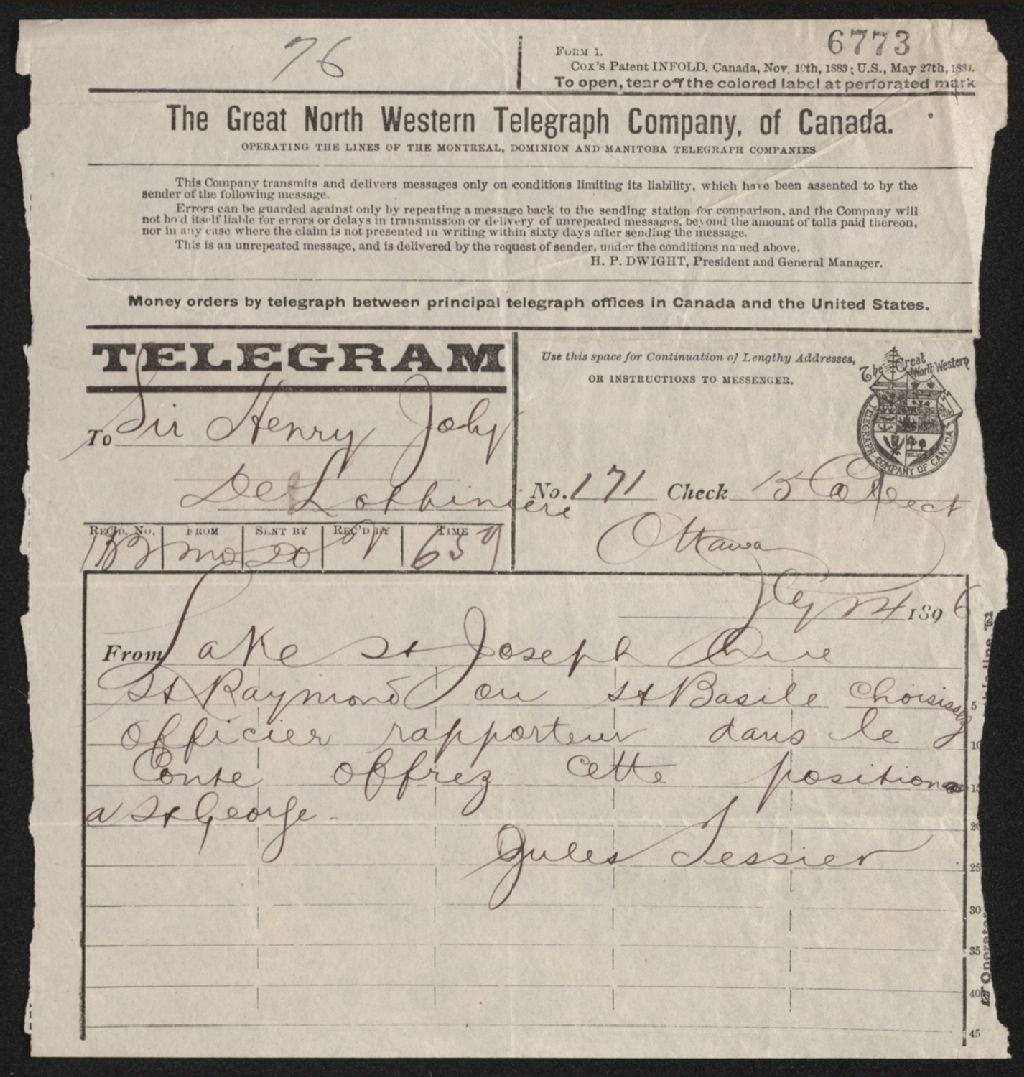 76
6773
FORM 1.
Cox's Patent INFOLD, Canada, Nov. 10th, 1883; U.S., May 27th, 1884.
To open, tear off the colored label at perforated mark
The Great North Western Telegraph Company, of Canada.
OPERATING THE LINES OF THE MONTREAL, DOMINION AND MANITOBA TELEGRAPH COMPANIES
This Company transmits and delivers messages only on conditions limiting its liability, which have been assented to by the
sender of the following message.
Errors can be guarded against only by repeating a message back to the sending station for comparison, and the Company will
not hold itself liable for errors or delays in transmission or delivery of unrepeated messages, beyond the amount of tolls paid thereon,
nor in any case where the claim is not presented in writing within sixty days after sending the message.
This is an unrepeated message, and is delivered by the request of sender, under the conditions named above.
H. P. DWIGHT, President and General Manager.
Money orders by telegraph between principal telegraph offices in Canada and the United States.
TELEGRAM
Use this space for Continuation of Lengthy Addresses,
OR INSTRUCTIONS TO MESSENGER.
The Great North Western
TELEGRAPH COMPANY OF CANADA
To Sir Henry Joly
De Lotbiniere
No. 171 Check 15 Collect
Ottawa
REC'D. NO. FROM SENT BY REC'D BY TIME
132 mo 20 657
24 1896
From Lake St Joseph Que
St Raymond ou St Basile choisissez
officier rapporteur dans le
Conte offrez cette position
a St George -
Jules Tessier
5
10
15
20
25
30
35
40
45